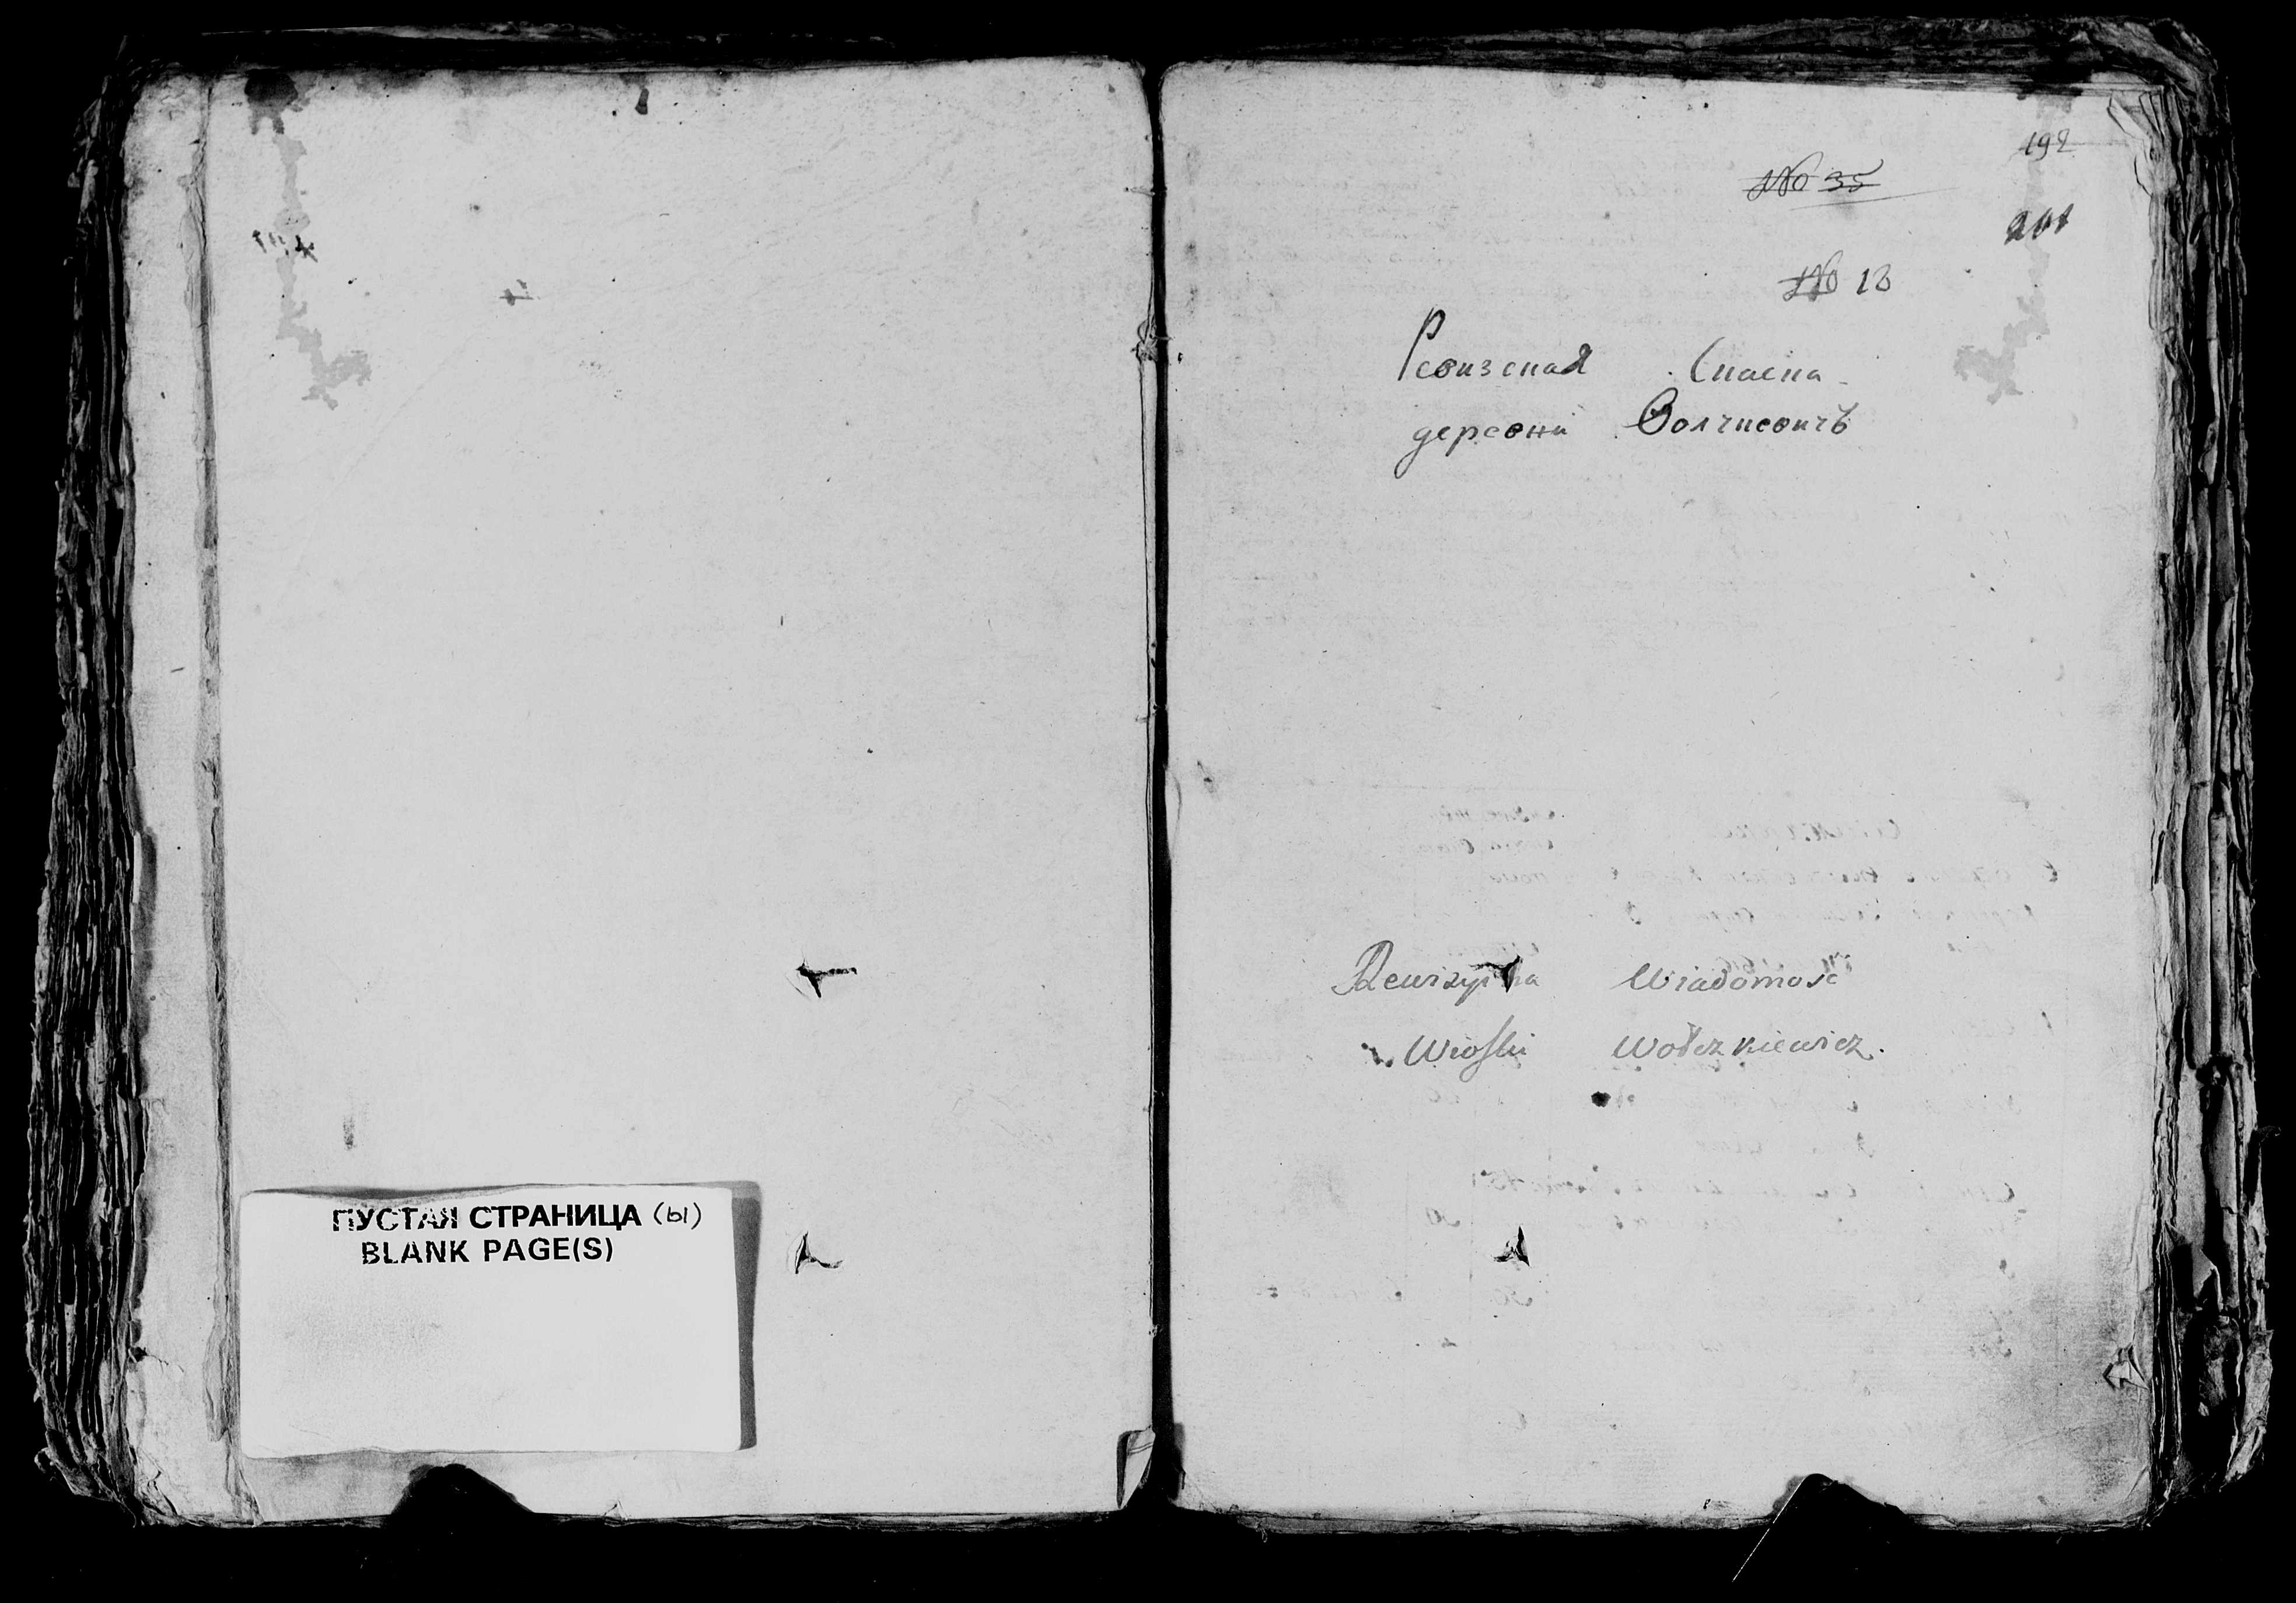 ПУСТАЯ СТРАНИЦА (ы)
BLANK PAGE(S)
192
No 35
201
No 13
Ревизская Сказка
деревни Волчкевичъ
Rewizyina Wiadomość
Wioski Wołczkiewicz.